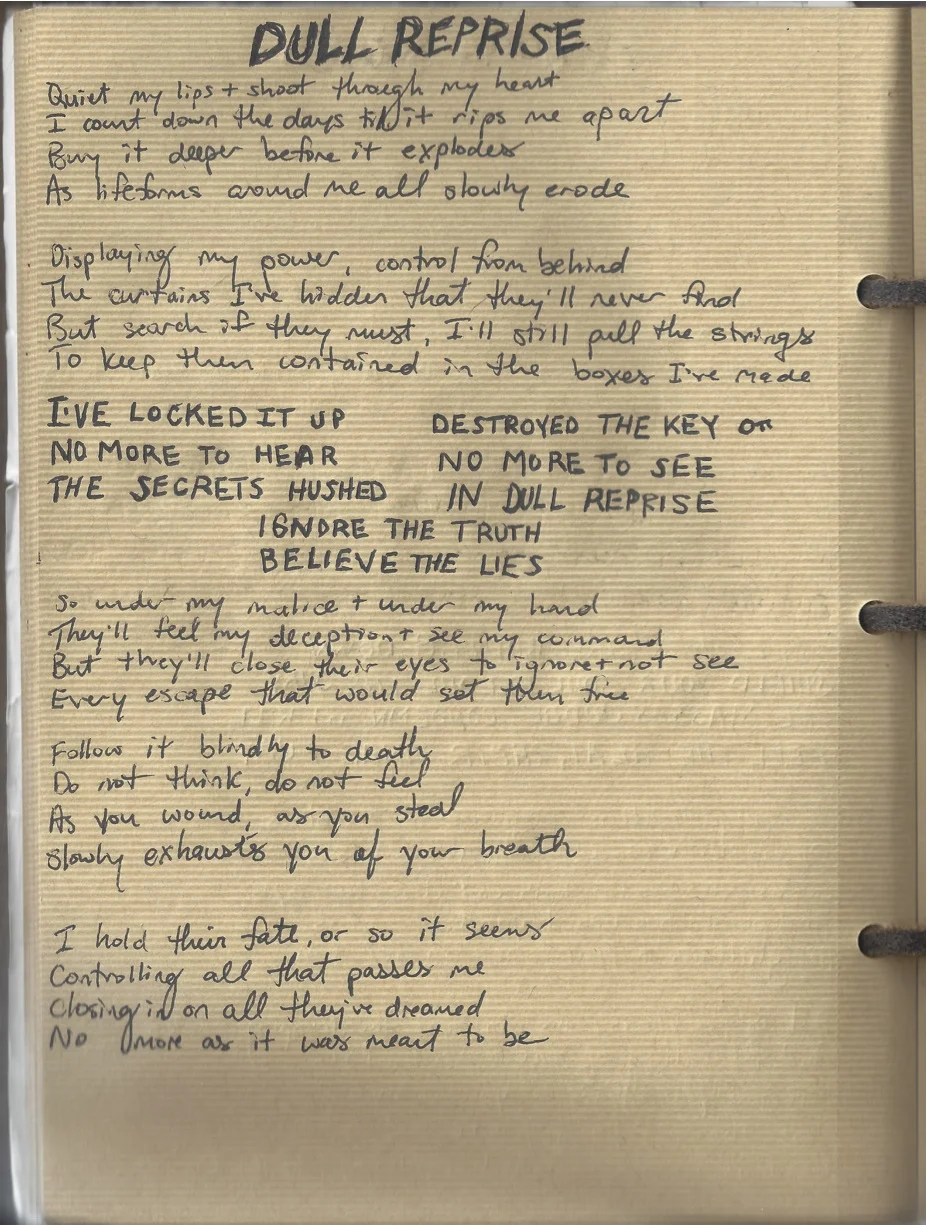 DULL REPRISE
Quiet my lips + shoot through my heart
I count down the days till it rips me apart
Bury it deeper before it explodes
As lifeforms around me all slowly erode
Displaying my power, control from behind
The curtains I've hidden that they'll never find
But search if they must, I'll still pull the strings
To keep them contained in the boxes I've made
I'VE LOCKED IT UP
DESTROYED THE KEY
NO MORE TO HEAR
NO MORE TO SEE
THE SECRETS HUSHED
IN DULL REPRISE
IGNORE THE TRUTH
BELIEVE THE LIES
So under my malice + under my hand
They'll feel my deception + see my command
But they'll close their eyes to ignore + not see
Every escape that would set them free
Follow it blindly to death
Do not think, do not feel
As you wound, as you steal
Slowly exhausts you of your breath
I hold their fate, or so it seems
Controlling all that passes me
Closing in on all they've dreamed
No more as it was meant to be